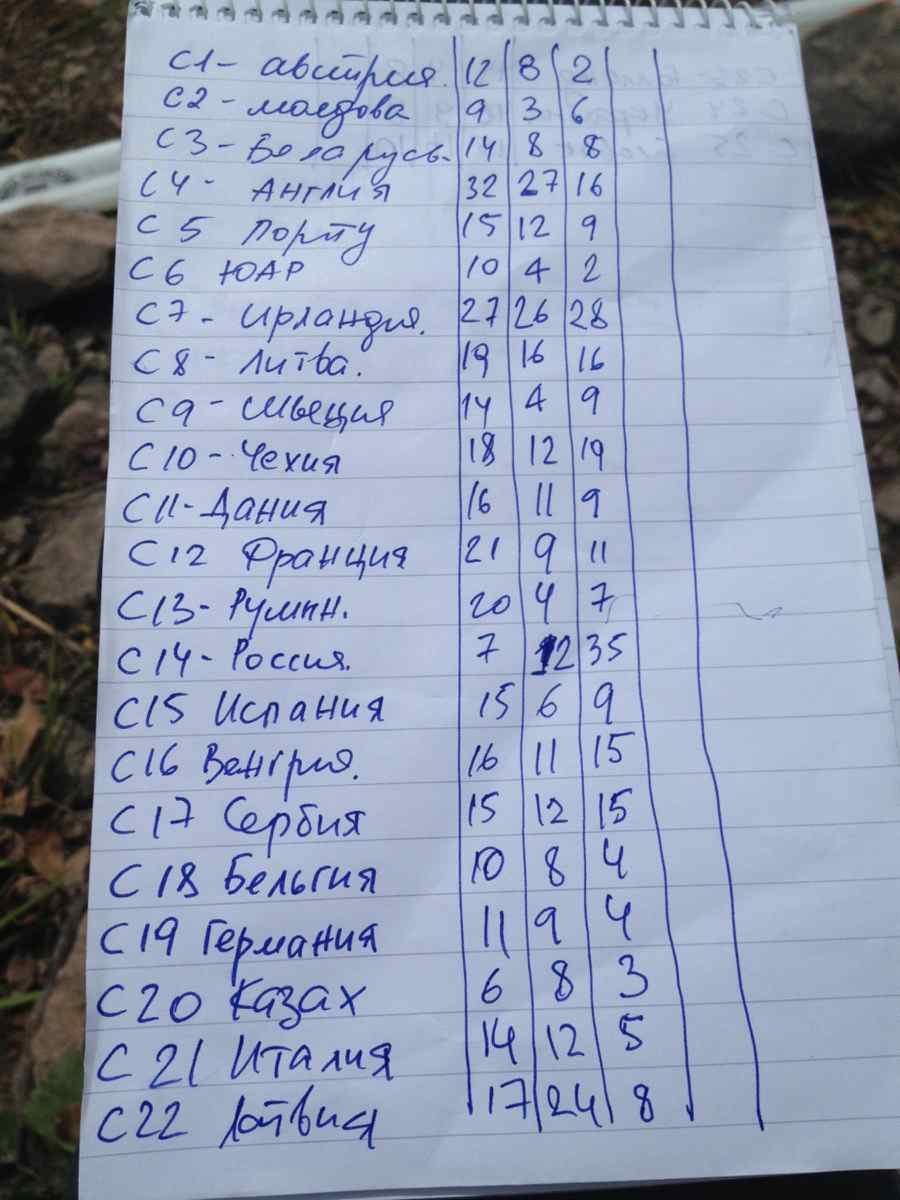 С1- австрия. 12 8 2
С2 - молдова 9 3 6
С3 - Беларусь. 14 8 8
С4 - Англия 32 27 16
С 5 Порту 15 12 9
С6 ЮАР 10 4 2
С7 - Ирландия. 27 26 28
С8 - Литва. 19 16 16
С9 - Швеция 14 4 9
С10 - Чехия 18 12 19
С11 - Дания 16 11 9
С12 Франция 21 9 11
С13 - Румын. 20 4 7
С14 - Россия. 7 12 35
С15 Испания 15 6 9
С16 Венгрия. 16 11 15
С17 Сербия 15 12 15
С18 Бельгия 10 8 4
С19 Германия 11 9 4
С20 Казах 6 8 3
С21 Италия 14 12 5
С22 Латвия 17 24 8